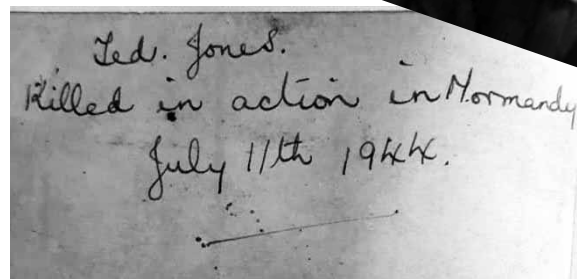 Ted. Jones.
Killed in action in Normandy
July 11th 1944.